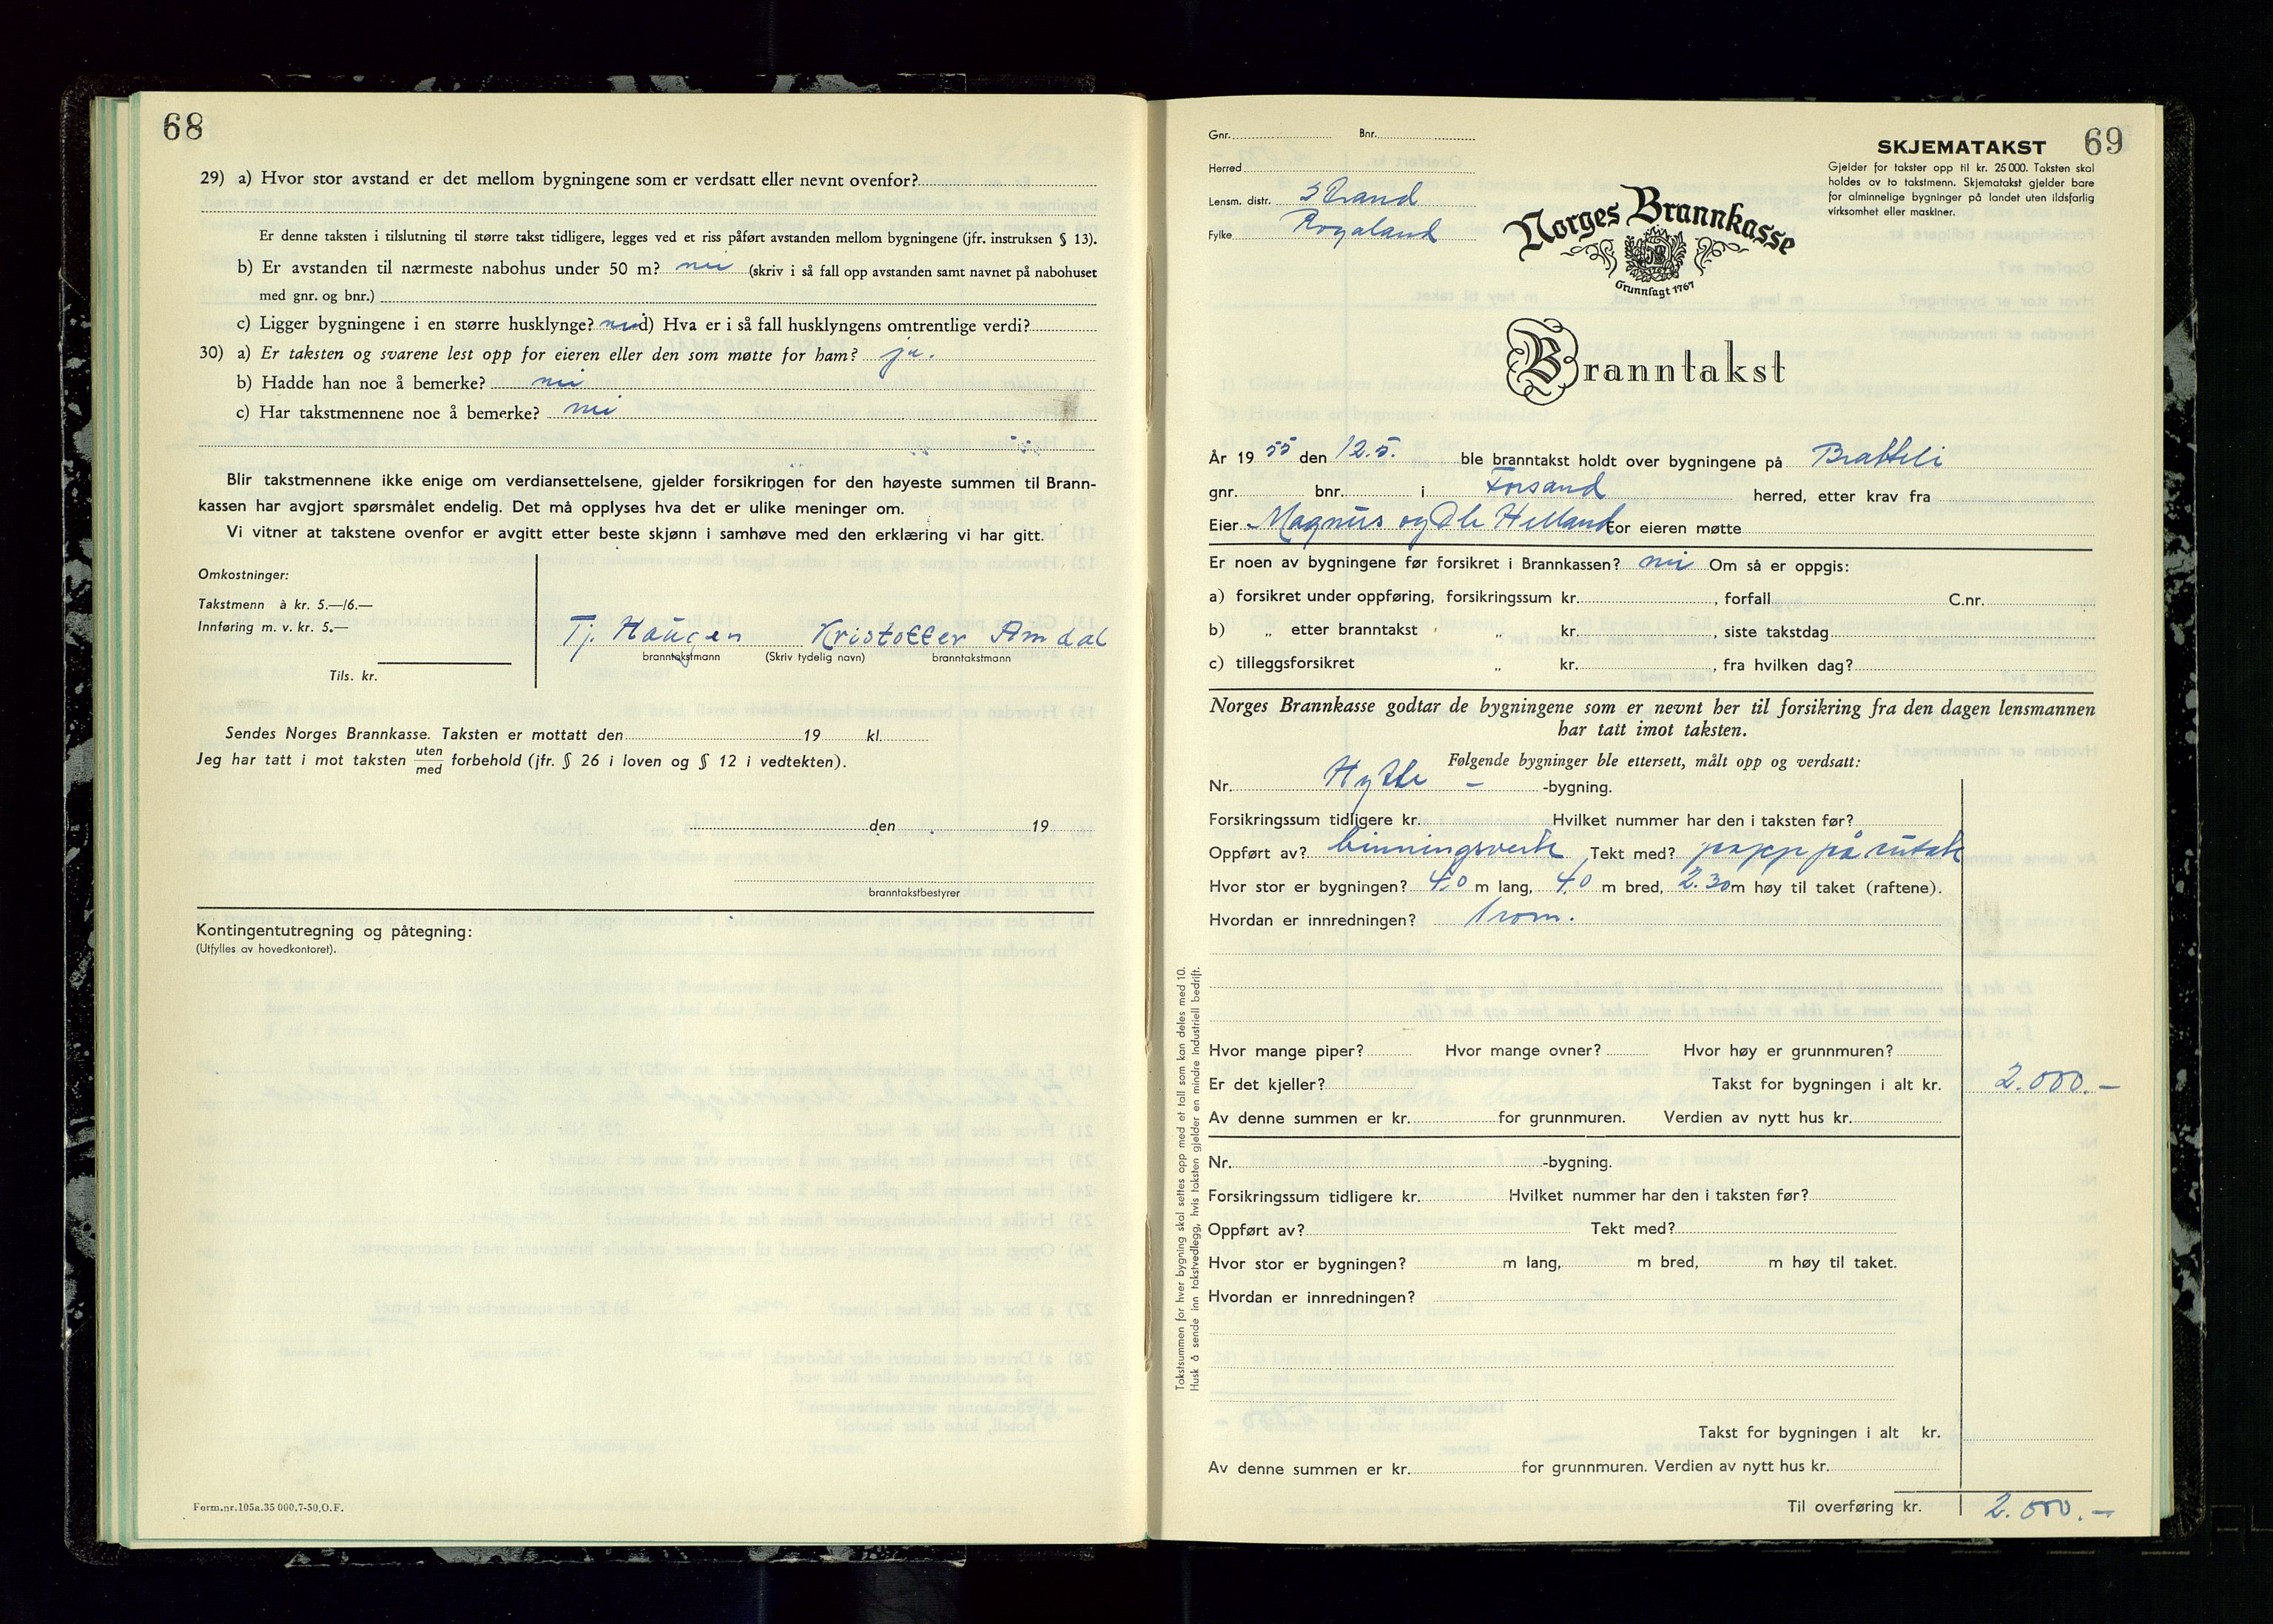 68
29) a) Hvor stor avstand er det mellom bygningene som er verdsatt eller nevnt ovenfor?
Er denne taksten i tilslutning til større takst tidligere, legges ved et riss påført avstanden mellom bygningene (jfr. instruksen § 13).
b) Er avstanden til nærmeste nabohus under 50 m? nei (skriv i så fall opp avstanden samt navnet på nabohuset
med gnr. og bnr.)
c) Ligger bygningene i en større husklynge? nei d) Hva er i så fall husklyngens omtrentlige verdi?
30) a) Er taksten og svarene lest opp for eieren eller den som møtte for ham? ja.
b) Hadde han noe å bemerke? nei
c) Har takstmennene noe å bemerke? nei
Blir takstmennene ikke enige om verdiansettelsene, gjelder forsikringen for den høyeste summen til Brann-
kassen har avgjort spørsmålet endelig. Det må opplyses hva det er ulike meninger om.
Vi vitner at takstene ovenfor er avgitt etter beste skjønn i samhøve med den erklæring vi har gitt.
Omkostninger:
Takstmenn à kr. 5.—/6.—
Innføring m. v. kr. 5.—
Tils. kr.
Tj. Haugen Kristoffer Amdal
branntakstmann (Skriv tydelig navn) branntakstmann
Sendes Norges Brannkasse. Taksten er mottatt den 19 kl.
Jeg har tatt i mot taksten uten/med forbehold (jfr. § 26 i loven og § 12 i vedtekten).
den 19
branntakstbestyrer
Kontingentutregning og påtegning:
(Utfylles av hovedkontoret).
Form.nr.105a.35 000.7-50.O.F.
69
Gnr. Bnr.
Herred
Lensm. distr. Strand
Fylke Rogaland
SKJEMATAKST
Gjelder for takster opp til kr. 25 000. Taksten skal
holdes av to takstmenn. Skjematakst gjelder bare
for alminnelige bygninger på landet uten ildsfarlig
virksomhet eller maskiner.
Norges Brannkasse
Grunnlagt 1767
Branntakst
År 1955 den 12.5. ble branntakst holdt over bygningene på Bratteli
gnr. bnr. i Forsand herred, etter krav fra
Eier Magnus og Ole Helland For eieren møtte
Er noen av bygningene før forsikret i Brannkassen? nei Om så er oppgis:
a) forsikret under oppføring, forsikringssum kr. , forfall C.nr.
b) „ etter branntakst „ kr. , siste takstdag
c) tilleggsforsikret „ kr. , fra hvilken dag?
Norges Brannkasse godtar de bygningene som er nevnt her til forsikring fra den dagen lensmannen
har tatt imot taksten.
Følgende bygninger ble ettersett, målt opp og verdsatt:
Nr. Hytte - -bygning.
Forsikringssum tidligere kr. Hvilket nummer har den i taksten før?
Oppført av? binningsverk Tekt med? papp på sutak
Hvor stor er bygningen? 4,0 m lang, 4,0 m bred, 2.30 m høy til taket (raftene).
Hvordan er innredningen? 1 rom.
Hvor mange piper? Hvor mange ovner? Hvor høy er grunnmuren?
Er det kjeller? Takst for bygningen i alt kr. 2.000.-
Av denne summen er kr. for grunnmuren. Verdien av nytt hus kr.
Nr. -bygning.
Forsikringssum tidligere kr. Hvilket nummer har den i taksten før?
Oppført av? Tekt med?
Hvor stor er bygningen? m lang, m bred, m høy til taket.
Hvordan er innredningen?
Takst for bygningen i alt kr.
Av denne summen er kr. for grunnmuren. Verdien av nytt hus kr.
Til overføring kr. 2.000.-
Takstsummen for hver bygning skal settes opp med et tall som kan deles med 10.
Husk å sende inn takstvedlegg, hvis taksten gjelder en mindre industriell bedrift.